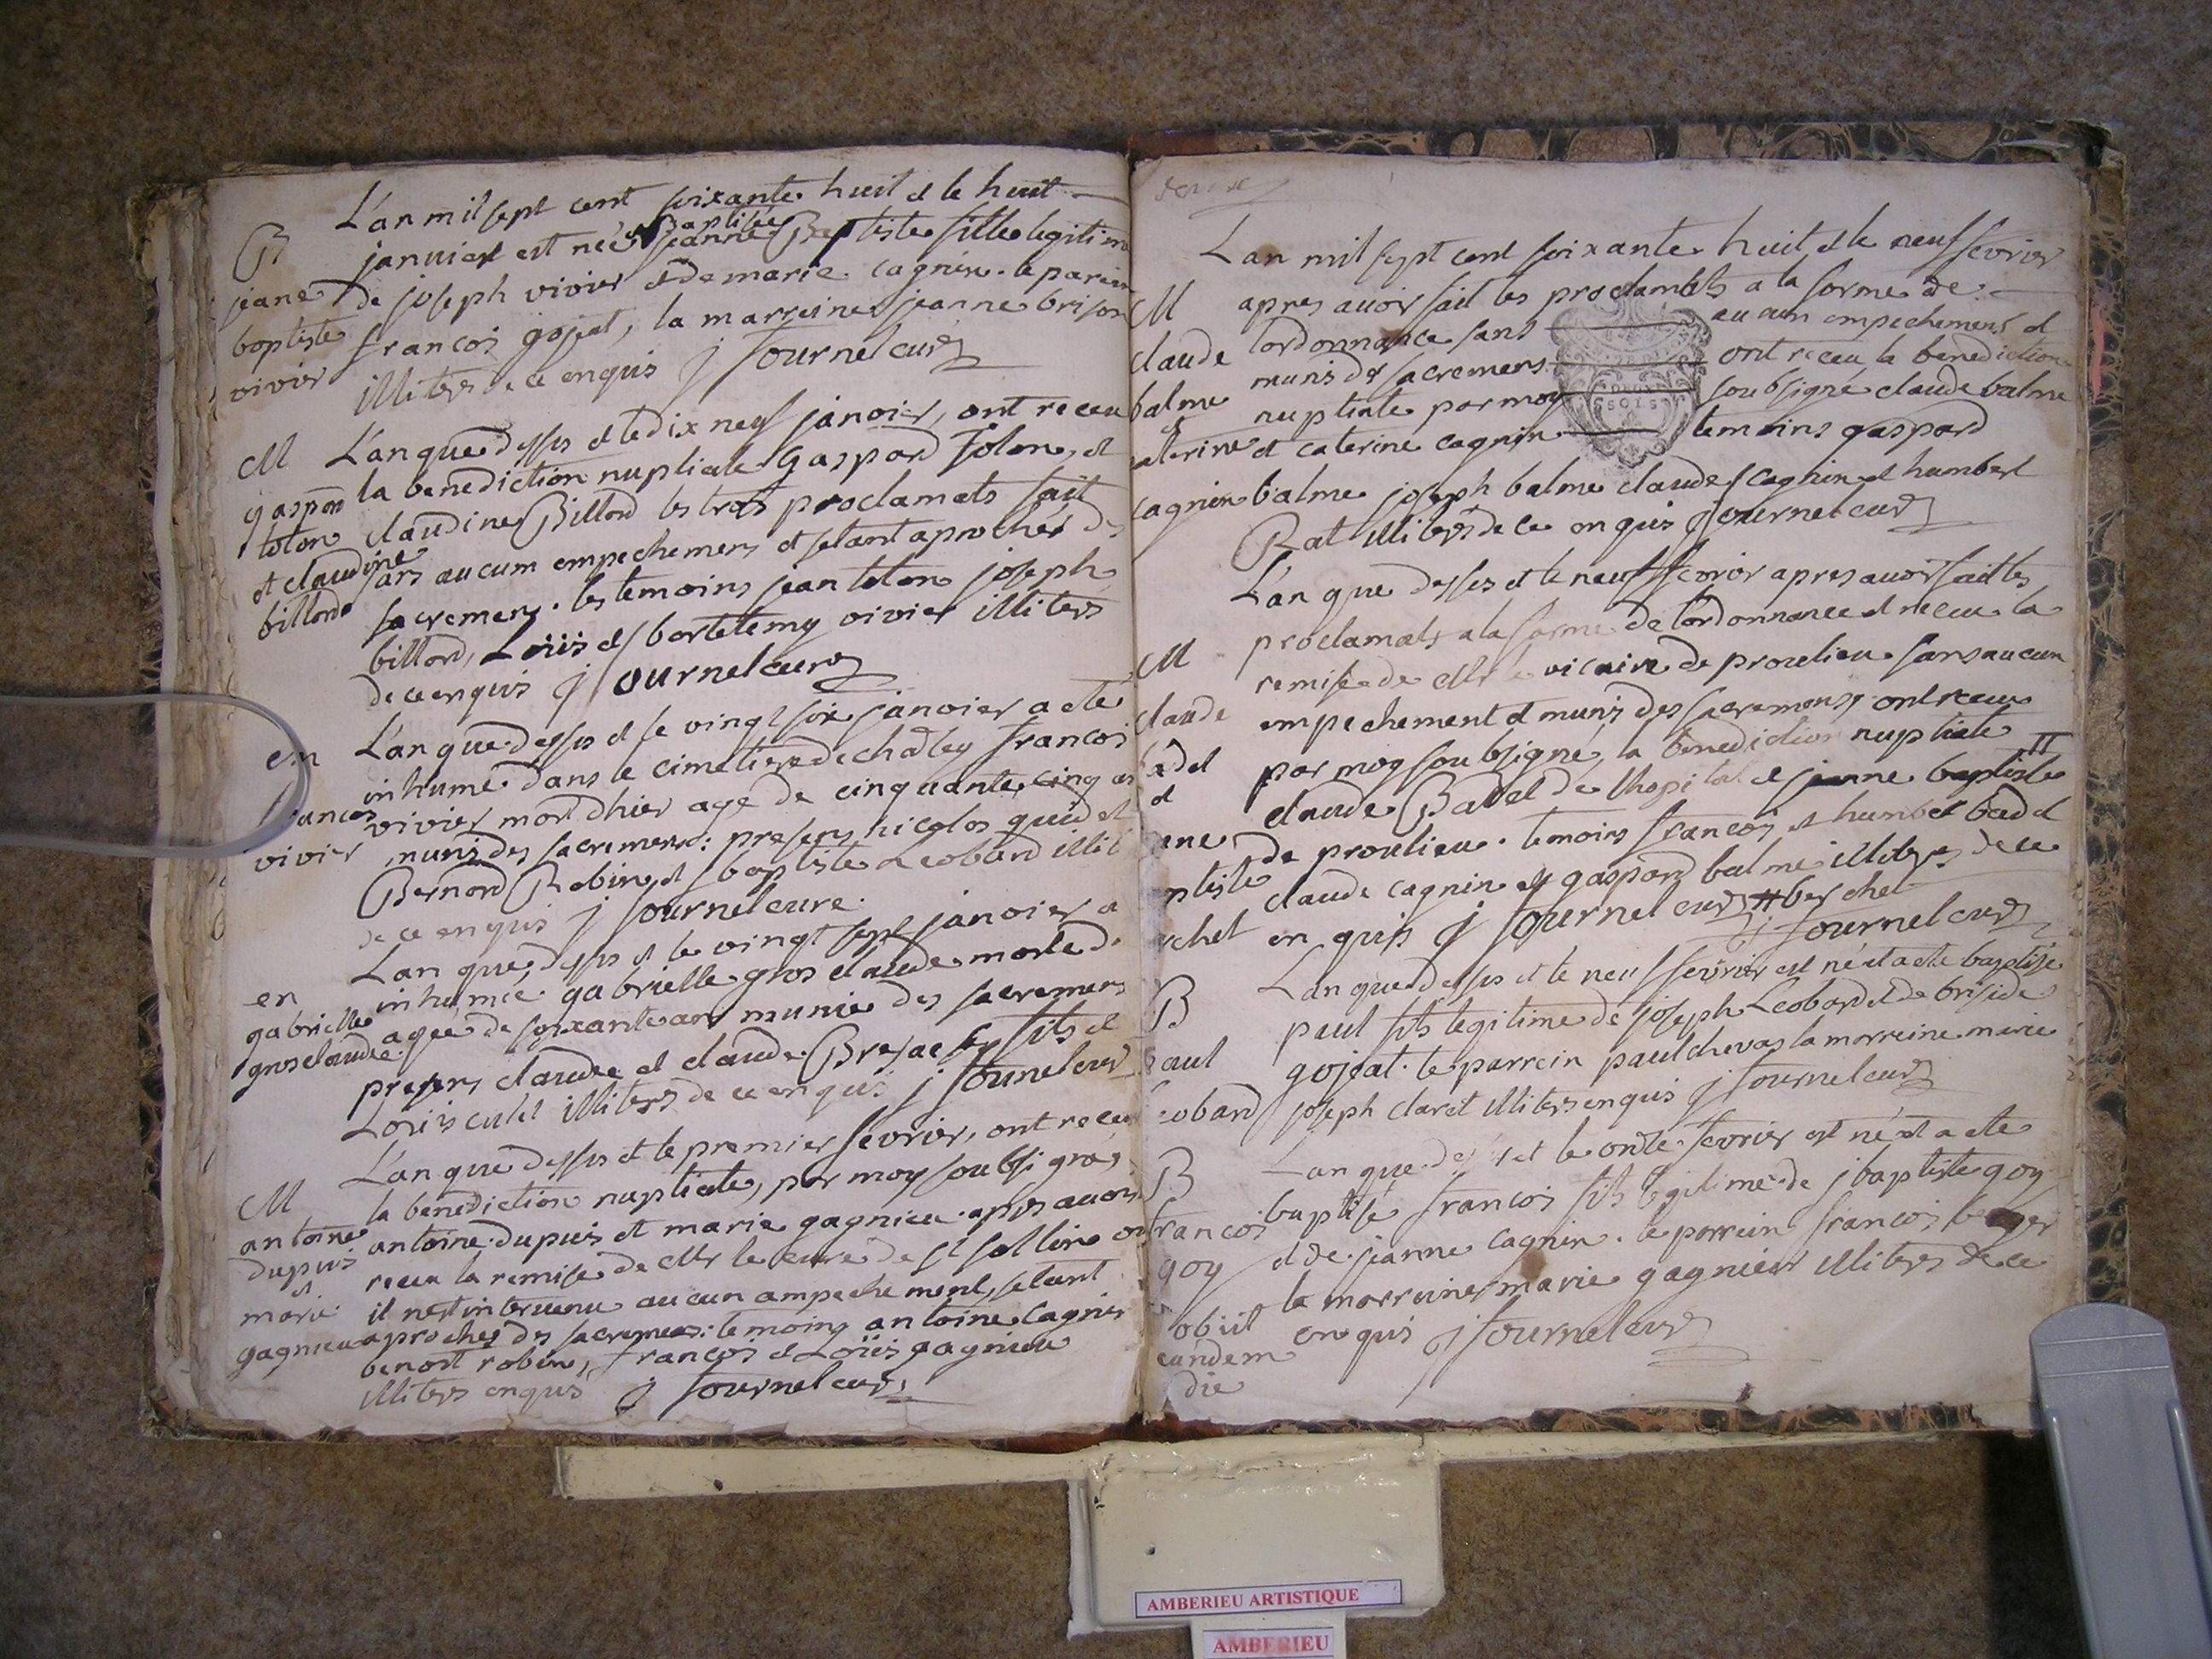 L'an mil sept cent soixante huit et le huit
B janvier est née et Baptisée jeanne Baptiste fille legitime
jeane de joseph vivier et de marie cagnin. le parein
baptiste francois gojat, la marreine jeanne brison
vivier illiters de ce enquis j fournel curé
M L'an que dessus et le dix neuf janvier, ont receu
gaspard la benediction nuptiale Gaspard tolon, et
tolon claudine Billord les trois proclamats fait
et claudine sans aucum empechemens et setant aprochés des
billord sacremens. les temoins jean tolon joseph
billord, Loüis et bartelemy vivier illiters
de ce enquis j fournel curé
en L'an que dessus et le vingt six janvier a eté
inhumé dans le cimetiere de chatley francois
francois vivier mort dhier agé de cinquante cinq ans
vivier munis des sacremens: presens nicolas quidet
Bernard Robin, et baptiste Leobard illit
de ce enquis j fournel cure.
L'an que dessus et le vingt sept janvier a
en inhumée gabrielle gros claude morte d
gabrielle agée de soixante ans munie des sacremens
grosclaude presens claude et claude Brejac fils et
Loüis culet illiters de ce enquis j fournel curé
L'an que dessus et le premier fevrier, ont receu
M la benediction nuptiale, par moy soubsigné
antoine antoine dupuis et marie gagnieu apres avoir
dupuis receu la remise de Mr le curé de st sollin
et il nest intervenu aucun ampechement, setant
marie
gagnieu aprochés des sacremens: temoins antoine cagnin
benoit robin, francois et Loüis gagnieu
illiters enquis j fournel curé
Lan mil sept cent soixante huit et le neuf fevrier
M apres avoir fait les proclamats a la forme de
claude lordonnance sans aucun empechement et
munis des sacremens ont receu la benediction
balme nuptiale par moy soubsigné claude balme
et
caterine et caterine cagnin temoins gaspard
DEUX SOLS
cagnin balme joseph balme claude cagnin et humbert
Rat illiters de ce enquis j fournel curé
L'an que dessus et le neuf fevrier apres avoir fait les
proclamats a la forme de lordonnance et receu la
M remise de Mr le vicaire de proulieu sans aucun
claude empechement et munis des sacremens, ont receu
badel par moy soubsigné, la benediction nuptiale
et claude Badel de lhopital et jeanne baptiste #
de proulieu. temoins francois et humbert badel
baptiste claude cagnin et gaspard balme illiters de ce
berchet en quis j fournel curé # berchet
j fournel curé
L'an que dessus et le neuf fevrier est né et a eté baptisé
B paul fils legitime de joseph Leobard et de briside
paul gojeat. le parrein paul chevas la marreine marie
Leobard joseph claret illiters enquis j fournel curé
B L'an que dessus et le onze fevrier est né et a eté
baptisé francois fils legitime de j baptiste goy
francois et de jeanne cagnin. le parrein francois berger
goy la marreine marie gagnieur illiters de ce
obiit en quis j fournel curé
eandem
die
AMBERIEU ARTISTIQUE
AMBERIEU